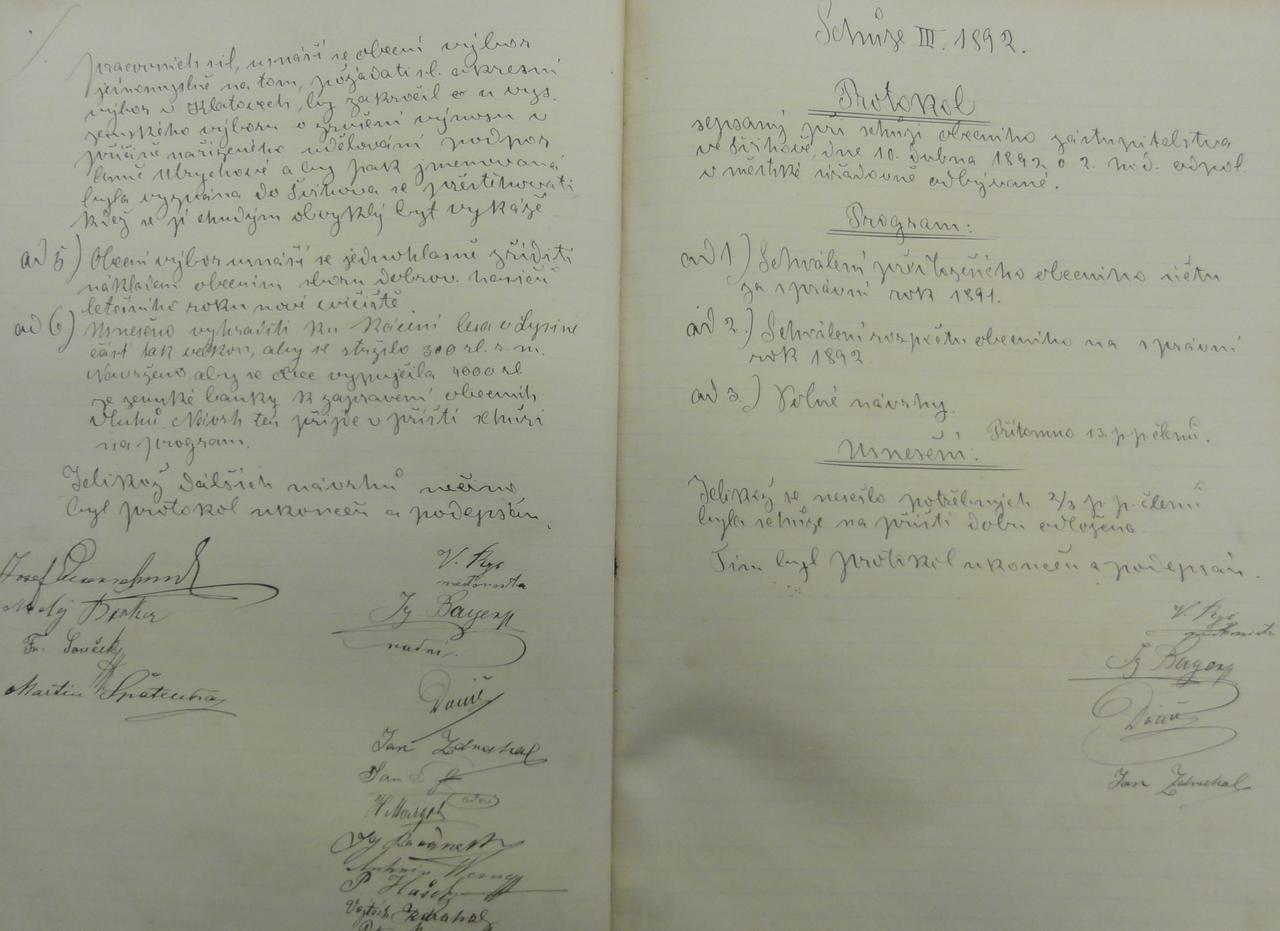 pracovních sil, usnáší se obecní výbor
jednomyslně na tom, požádati sl. okresní
výbor v Klatovech, by zakročil u vys.
zemského výboru o zrušení výnosu v
příčině nařízeného udělování podpor
a by pak jmenovaná
byla vyzvána do se přestěhovati
když se jí chudým obvyklý byt vykáže
ad 5) Obecní výbor usnáší se jednohlasně zříditi
nákladem obecním sboru dobrov. hasičů
letošního roku nové cvičiště.
ad 6) Usneseno vyhraditi ku kácení lesa v
část tak velkou, aby se stržilo 300 zl. r. m.
Navrženo, aby se obec vypujčila 4000 zl
ze zemské banky k zapravení obecních
dluhů. Návrh ten přijde v příští schůzi
na program.
Jelikož dalších návrhů
byl protokol ukončen a podepsán.
Josef
Fr. Souček
Martin
V. Rys
měšťanosta
Ig Bayerl
radní.
Jan Zdrachal
Jan
Antonín
P. Hašek
Vojtěch Zdrachal
Schůze III. 1892.
Protokol
sepsaný při schůzi obecního zástupitelstva
ve dne 10. dubna 1892 o 2. hod. odpol.
v městské úřadovně odbývané.
Program:
ad 1) Schválení předloženého obecního účtu
za správní rok 1891.
ad 2.) Schválení rozpočtu obecního na správní
rok 1892.
ad 3.) Volné návrhy.
Přítomno 13. p. p. členů.
Usnesení:
Jelikož se nesešlo potřebných 2/3 p. p. členů
byla schůze na příští dobu odložena.
Tím byl protokol ukončen a podepsán.
V. Rys
měšťanosta
Ig Bayerl
Jan Zdrachal